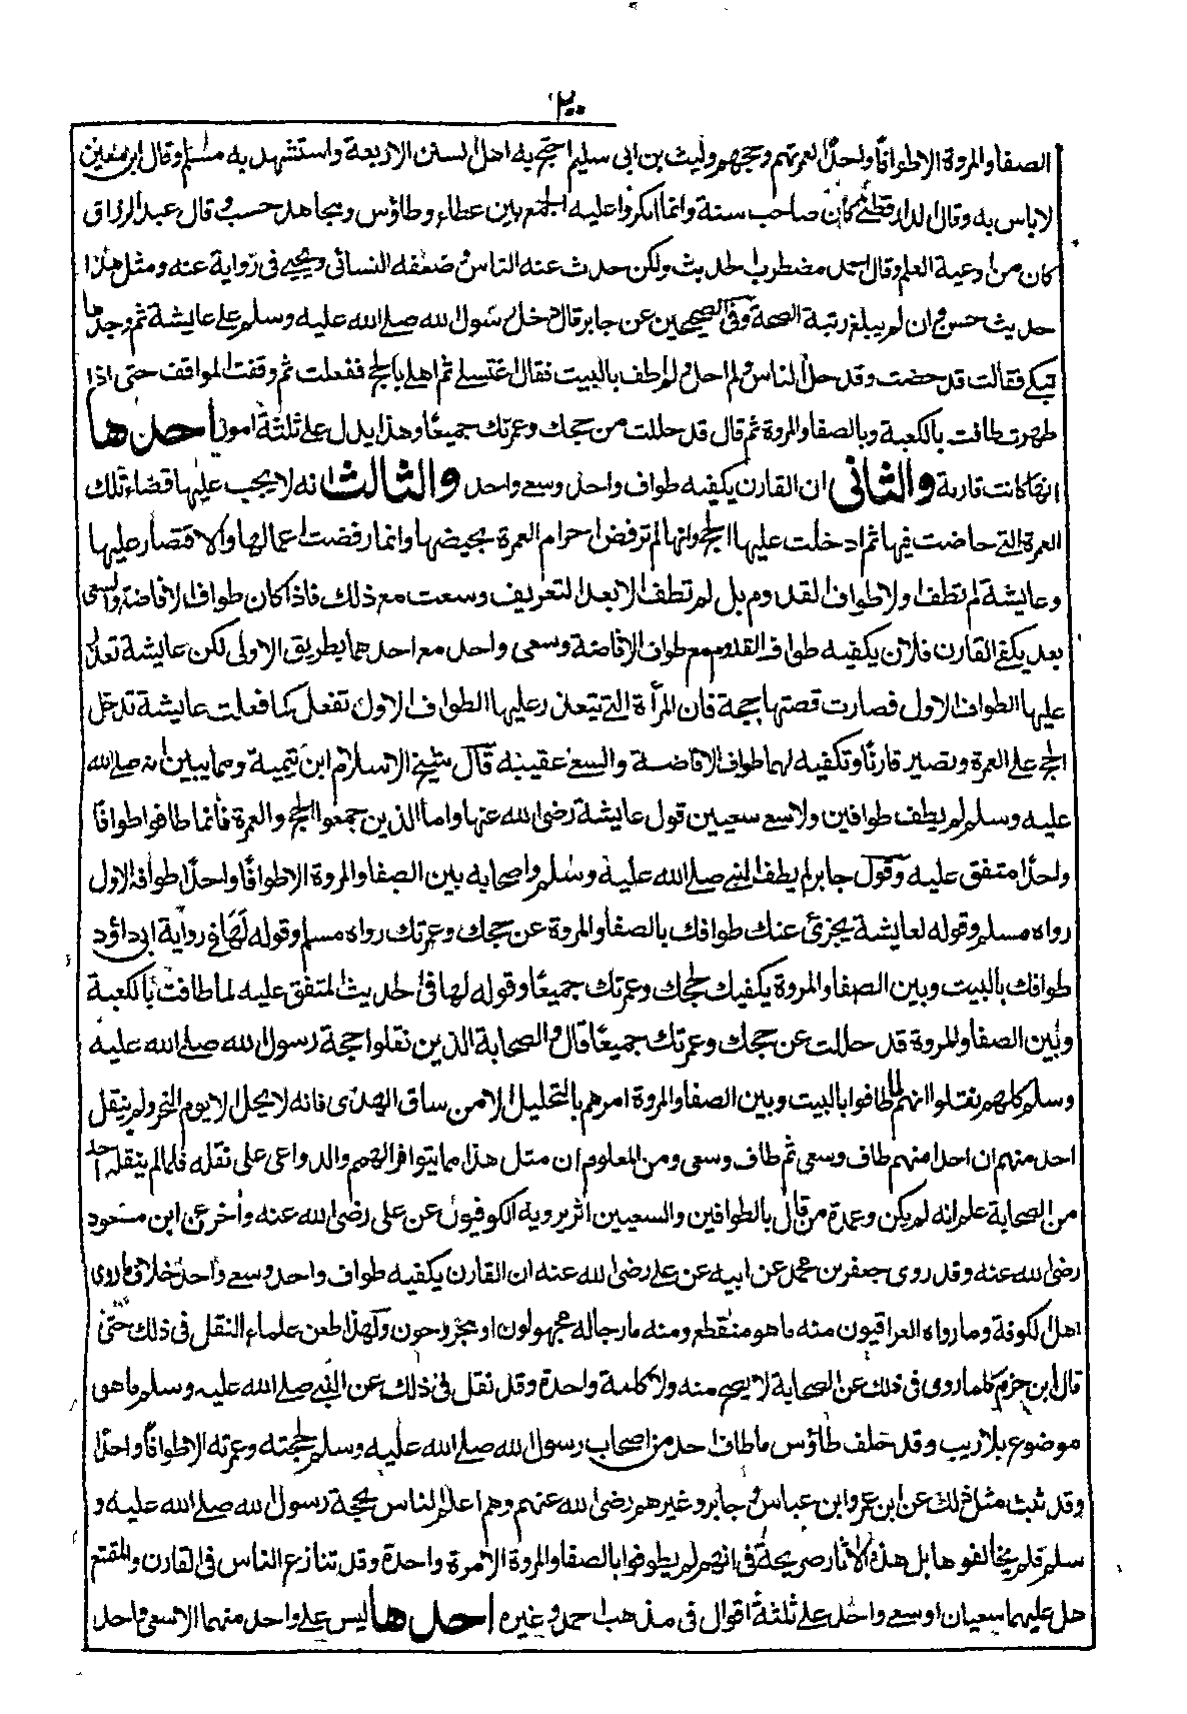 ٢٠٠
الصفا والمروة الا طوافًا واحدًا لعمرتهم وحجهم وليث بن ابى سليم احتج به اهل السنن الاربعة واستشهد به مسلم وقال ابن معين
لا باس به وقال الدارقطنى كان صاحب سنة وانما انكروا عليه الجمع بين عطاء وطاؤس ومجاهد حسب وقال عبد الرزاق
كان من اوعية العلم وقال احمد مضطرب الحديث ولكن حدث عنه الناس وضعفه النسائى ويحيى فى رواية عنه ومثل هذا
حديث حسن وان لم يبلغ رتبة الصحة وفى الصحيحين عن جابر قال دخل رسول الله صلى الله عليه وسلم على عايشة ثم وجدها
تبكى فقالت قد حضت وقد حل الناس ولم احل ولم اطف بالبيت فقال اغتسلى ثم اهلى بالحج ففعلت ثم وقفت المواقف حتى اذا
طهرت طافت بالكعبة وبالصفا والمروة ثم قال قد حللت من حجك وعمرتك جميعًا وهذا يدل على ثلثة امور احدها
انها كانت قارنة والثانى ان القارن يكفيه طواف واحد وسعى واحد والثالث انه لا يجب عليها قضاء تلك
العمرة التى حاضت فيها ثم ادخلت عليها الحج وانها لم ترفض احرام العمرة بحيضها وانما رفضت اعمالها والاقتصار عليها
وعايشة لم تطف اولا طواف القدوم بل لم تطف الا بعد التعريف وسعت مع ذلك فاذا كان طواف الافاضة والسعى
بعد يكفى القارن فلان يكفيه طواف القدوم مع طواف الافاضة وسعى واحد مع احدهما بطريق الاولى لكن عايشة تعذر
عليها الطواف الاول فصارت قصتها حجة فان المرأة التى يتعذر عليها الطواف الاول تفعل كما فعلت عايشة تدخل
الحج على العمرة وتصير قارنًا وتكفيه لهما طواف الافاضة والسعى عقيبه قال شيخ الاسلام ابن تيمية ومما يبين انه صلى الله
عليه وسلم لم يطف طوافين ولا سعى سعيين قول عايشة رضى الله عنها واما الذين جمعوا الحج والعمرة فانما طافوا طوافًا
واحدًا متفق عليه وقول جابر لم يطف النبى صلى الله عليه وسلم واصحابه بين الصفا والمروة الا طوافًا واحدًا طوافه الاول
رواه مسلم وقوله لعايشة يجزئ عنك طوافك بالصفا والمروة عن حجك وعمرتك رواه مسلم وقوله لها فى رواية ابى داؤد
طوافك بالبيت وبين الصفا والمروة يكفيك لحجك وعمرتك جميعًا وقوله لها فى الحديث المتفق عليه لما طافت بالكعبة
وبين الصفا والمروة قد حللت عن حجك وعمرتك جميعًا قال والصحابة الذين نقلوا حجة رسول الله صلى الله عليه
وسلم كلهم نقلوا انهم لما طافوا بالبيت وبين الصفا والمروة امرهم بالتحليل الا من ساق الهدى فانه لا يحل الا يوم النحر ولم ينقل
احد منهم ان احدا منهم طاف وسعى ثم طاف وسعى ومن المعلوم ان مثل هذا مما يتوافر الهمم والدواعى على نقله فلما لم ينقله احد
من الصحابة علم انه لم يكن وعمدة من قال بالطوافين والسعيين اثر يرويه الكوفيون عن على رضى الله عنه واخر عن ابن مسعود
رضى الله عنه وقد روى جعفر بن محمد عن ابيه عن على رضى الله عنه ان القارن يكفيه طواف واحد وسعى واحد خلاف ما روى
اهل الكوفة وما رواه العراقيون منه ما هو منقطع ومنه ما رجاله مجهولون او مجروحون ولهذا طعن علماء النقل فى ذلك حتى
قال ابن حزم كلما روى فى ذلك عن الصحابة لا يصح منه ولا كلمة واحدة وقد نقل فى ذلك عن النبى صلى الله عليه وسلم ما هو
موضوع بلا ريب وقد حلف طاؤس ما طاف احد من اصحاب رسول الله صلى الله عليه وسلم لحجته وعمرته الا طوافًا واحدًا
وقد ثبت مثل ذلك عن ابن عمر وابن عباس وجابر وغيرهم رضى الله عنهم وهم اعلم الناس بحجة رسول الله صلى الله عليه و
سلم فلم يخالفوها بل هذه الاثار صريحة فى انهم لم يطوفوا بالصفا والمروة الا مرة واحدة وقد تنازع الناس فى القارن والمتمتع
هل عليهما سعيان او سعى واحد على ثلثة اقوال فى مذهب احمد وغيره احدها ليس على واحد منهما الا سعى واحد